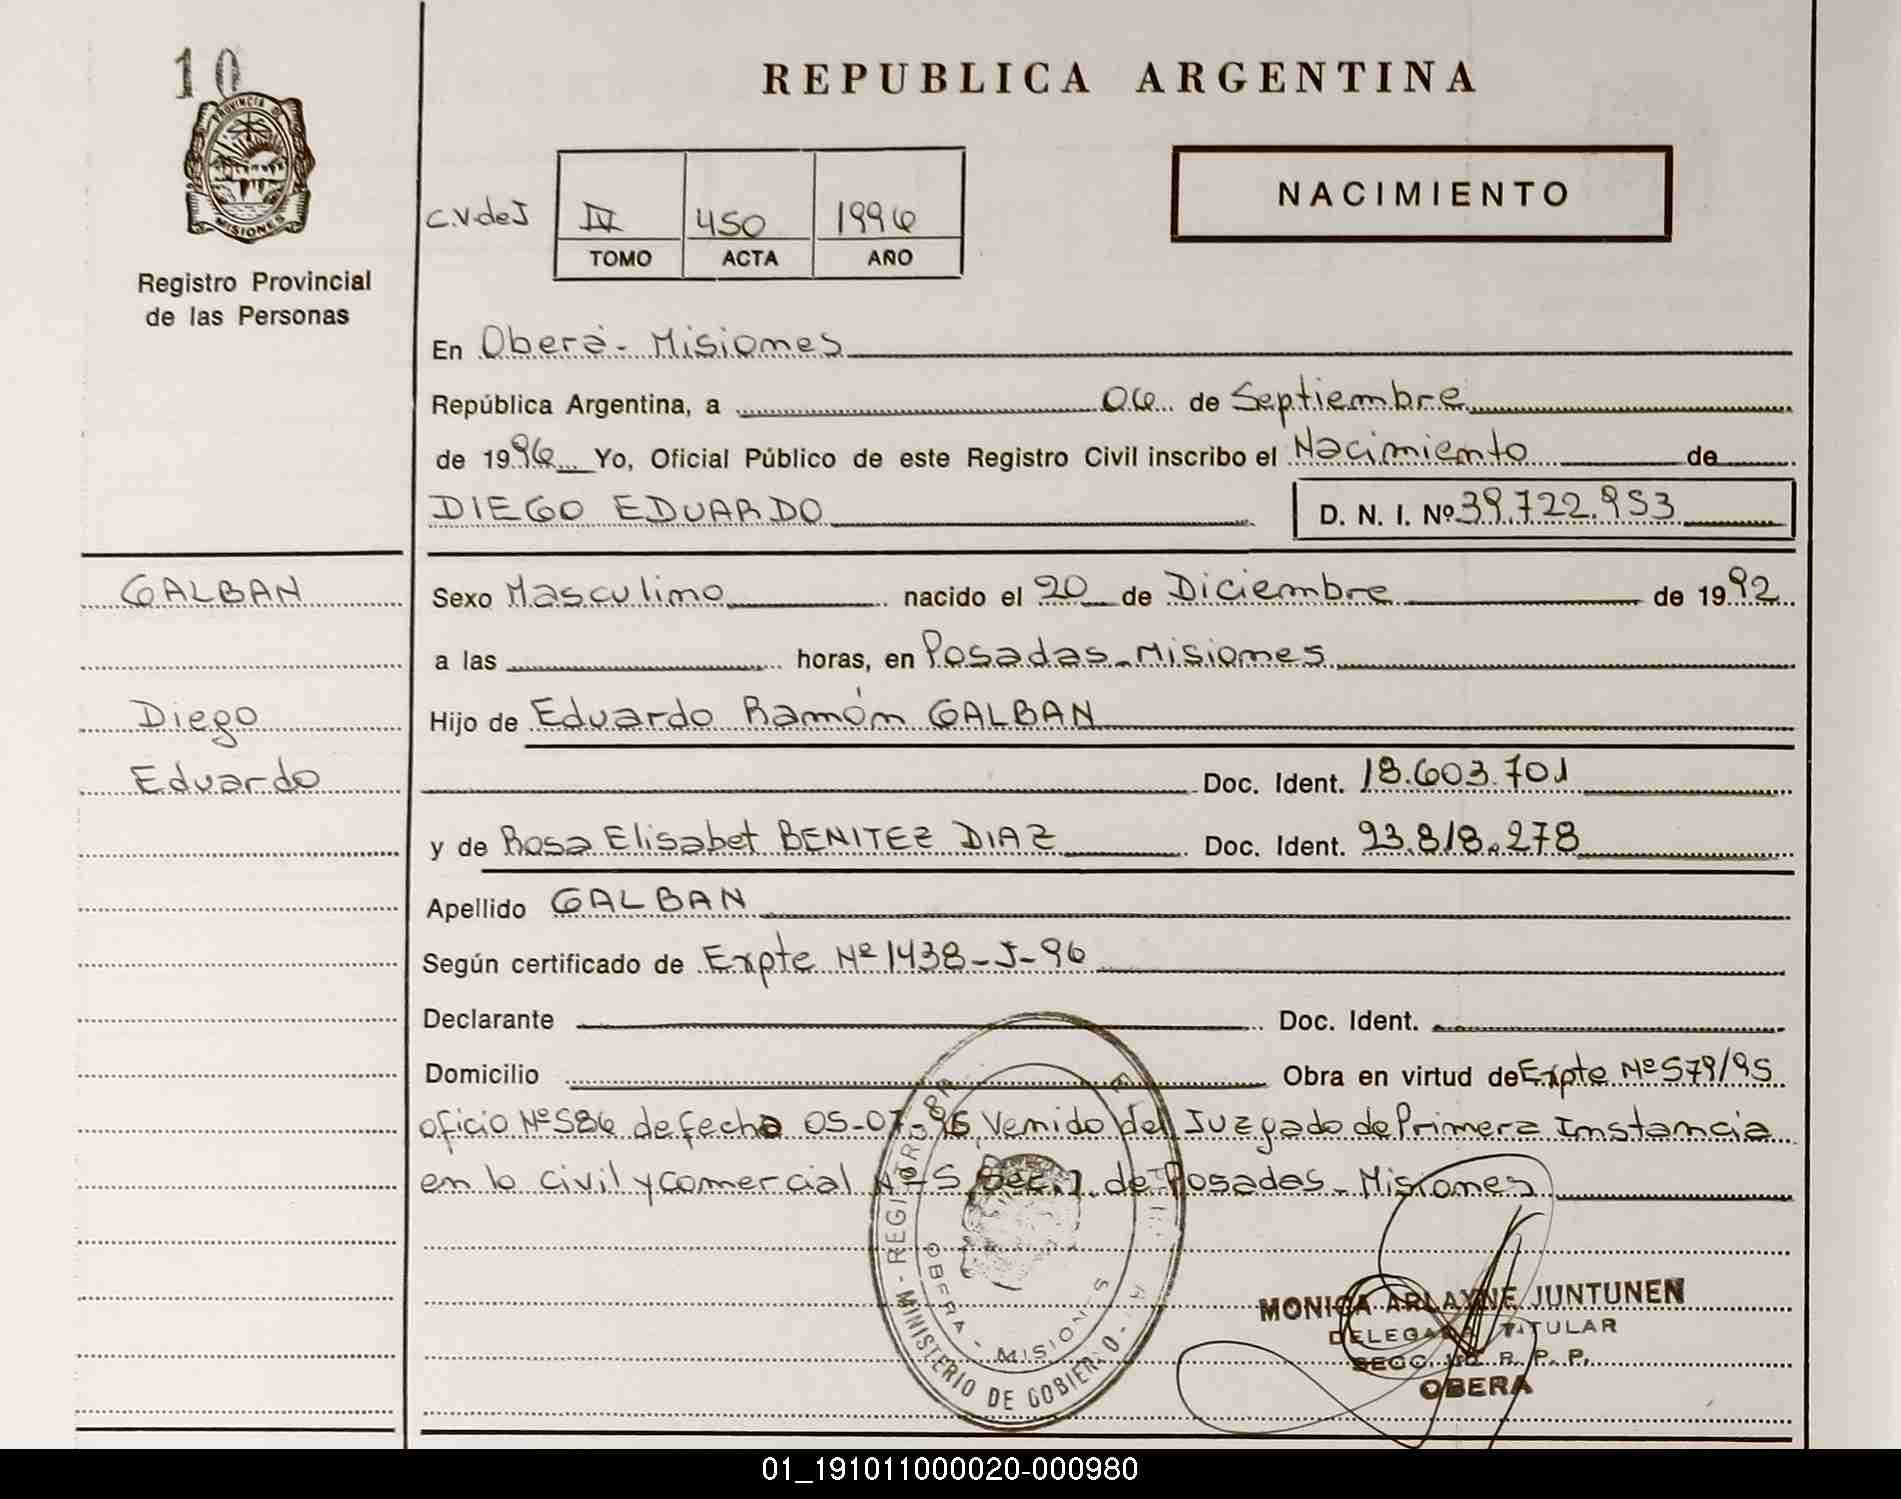 10
PROVINCIA DE
MISIONES
Registro Provincial
de las Personas
REPUBLICA ARGENTINA
C.V.deJ
IV 450 1996
TOMO ACTA AÑO
NACIMIENTO
En Oberá - Misiones
República Argentina, a 06 de Septiembre
de 1996 Yo, Oficial Público de este Registro Civil inscribo el Nacimiento de
DIEGO EDUARDO D. N. I. Nº 39.722.953
GALBAN
Diego
Eduardo
Sexo Masculino nacido el 20 de Diciembre de 1992
a las horas, en Posadas - Misiones
Hijo de Eduardo Ramón GALBAN
Doc. Ident. 18.603.701
y de Rosa Elisabet BENITEZ DIAZ Doc. Ident. 93.818.278
Apellido GALBAN
Según certificado de Expte Nº 1438-J-96
Declarante Doc. Ident.
Domicilio Obra en virtud de Expte Nº 579/95
oficio Nº 586 de fecha 05-07-96, Venido del Juzgado de Primera Instancia
en lo civil y comercial Nº 5, Sec. 1. de Posadas - Misiones
OBERA - MISIONES
MINISTERIO DE GOBIERNO -
MONICA ARLAYNE JUNTUNEN
DELEGADA TITULAR
SECC. R. P. P.
OBERA
01_191011000020-000980